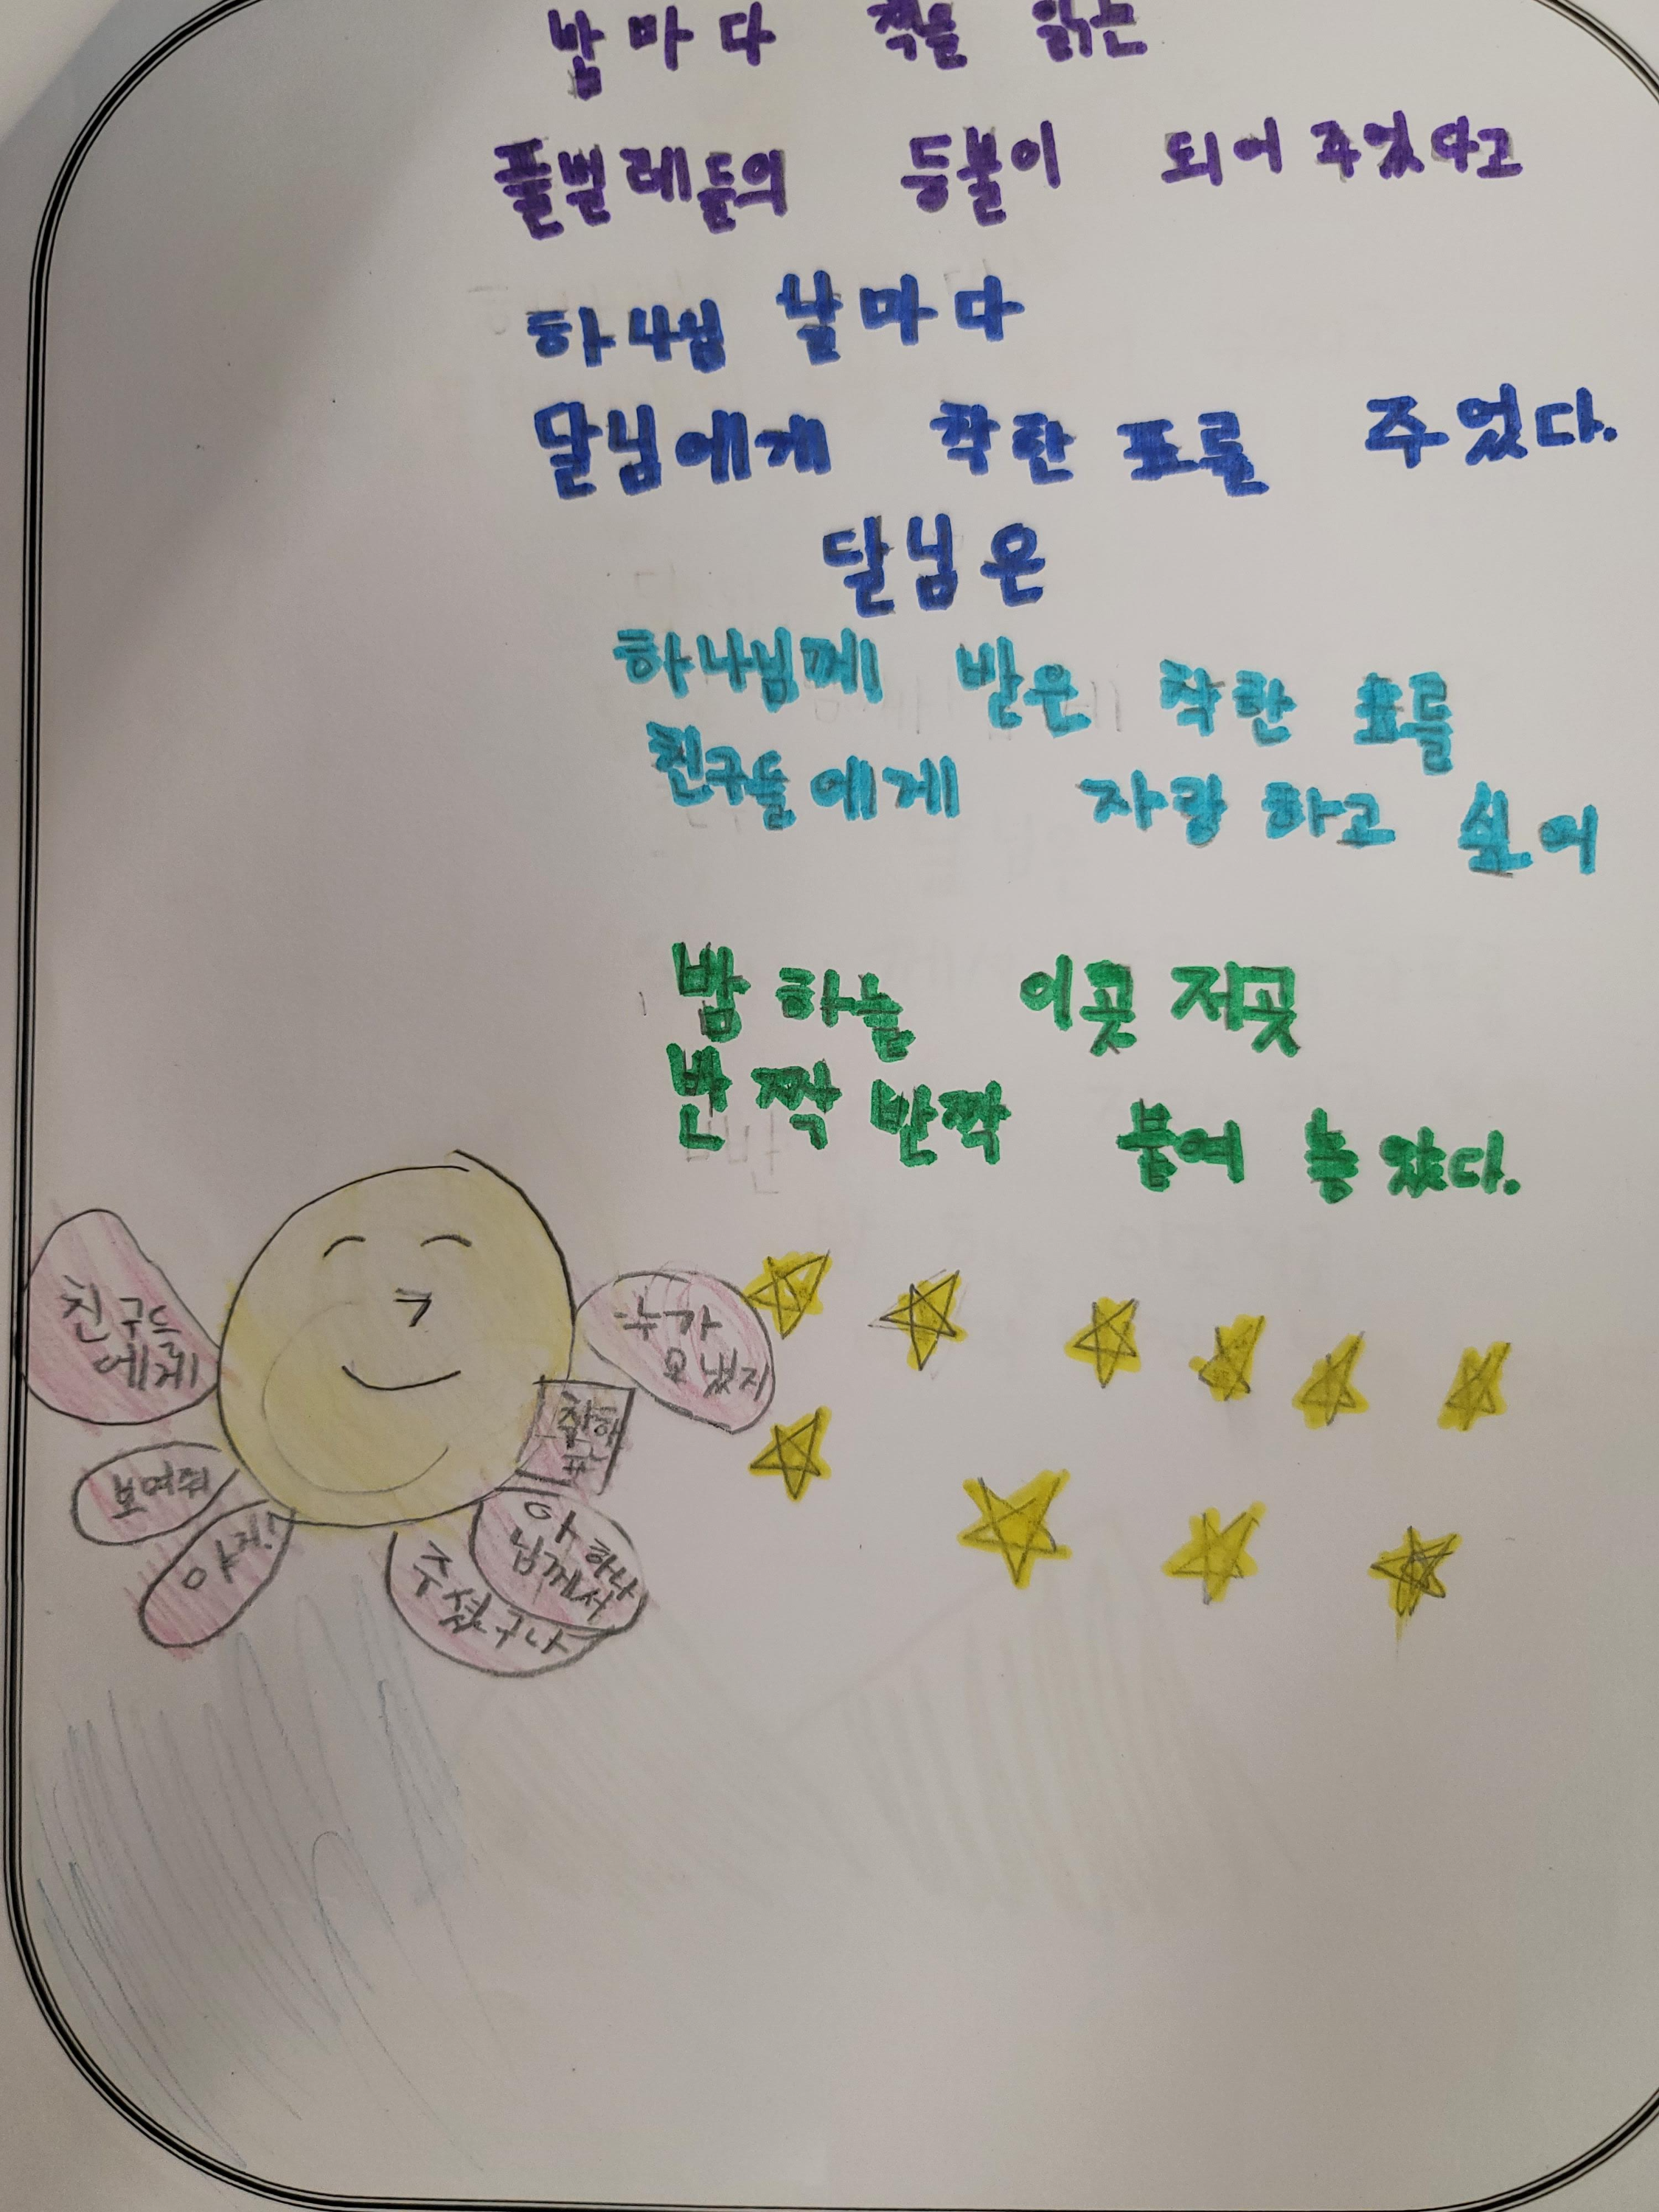 밤마다 책을 읽는
풀벌레들의 등불이 되어 주었다고
하나님 날마다
달님에게 착한 표를 주었다.
달님은
하나님께 받은 착한 표를
친구들에게 자랑하고 싶어
밤 하늘 이곳 저곳
반짝반짝 붙여 놓았다.
친구드
에게
보여줘
야지!
누가
보냈지
착한
표
아 하나
님께서
주셨구나